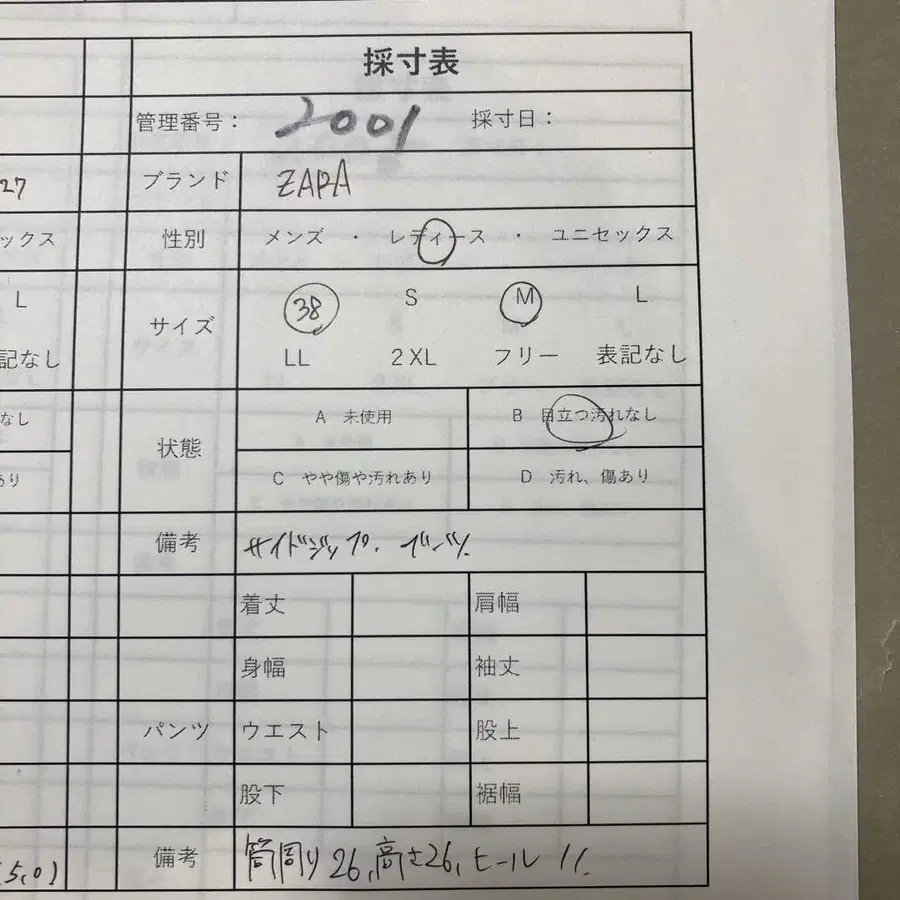 採寸表
管理番号： 2001 採寸日：
27 ブランド ZARA
ックス 性別 メンズ ・ レディース ・ ユニセックス
L サイズ 38 S M L
記なし LL 2XL フリー 表記なし
なし 状態 A 未使用 B 目立つ汚れなし
あり C やや傷や汚れあり D 汚れ、傷あり
備考 サイドジップ. ブーツ.
着丈 肩幅
身幅 袖丈
パンツ ウエスト 股上
股下 裾幅
5,0) 備考 筒周り26,高さ26,ヒール11.